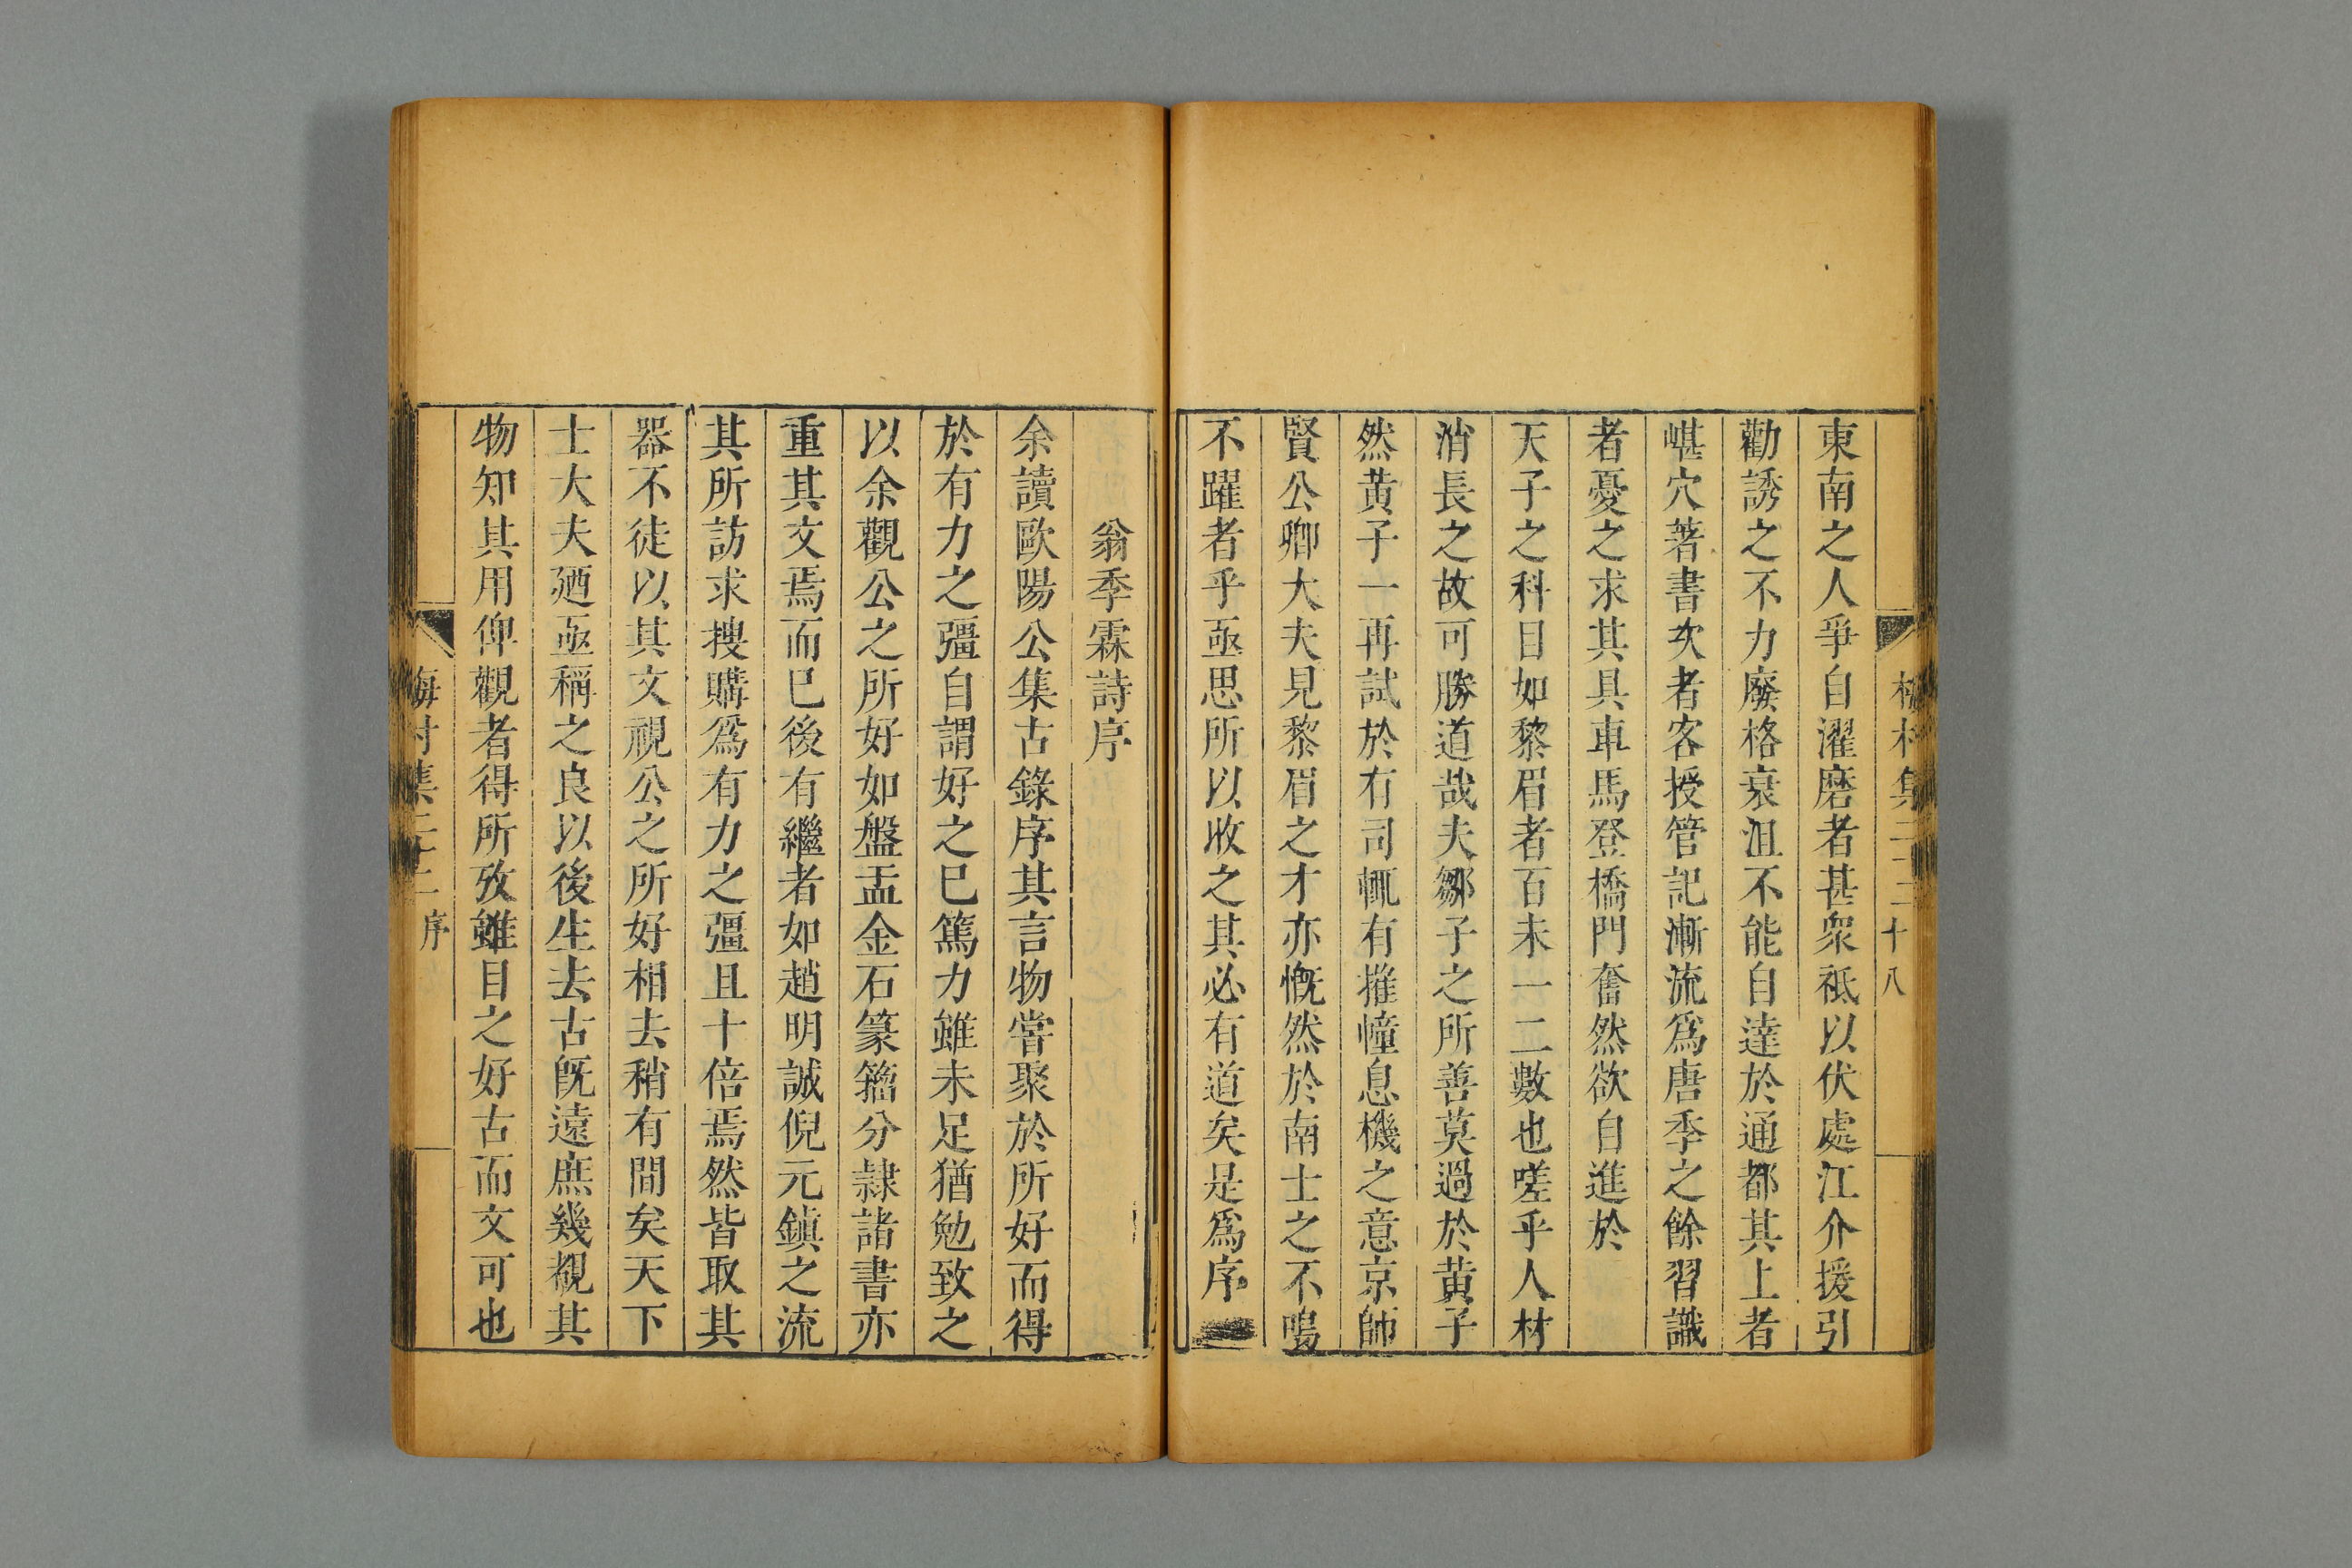 東南之人爭自濯磨者甚衆祗以伏處江介援引
勸誘之不力廢格衰沮不能自達於通都其上者
嵁穴著書次者客授管記漸流爲唐季之餘習識
者憂之求其具車馬登橋門奮然欲自進於
天子之科目如黎眉者百未一二數也嗟乎人材
消長之故可勝道哉夫鄒子之所善莫過於黄子
然黄子一再試於有司輒有摧幢息機之意京師
賢公卿大夫見黎眉之才亦慨然於南士之不鳴
不躍者乎亟思所以收之其必有道矣是爲序
翁季霖詩序
余讀歐陽公集古錄序其言物嘗聚於所好而得
於有力之彊自謂好之已篤力雖未足猶勉致之
以余觀公之所好如盤盂金石篆籀分隷諸書亦
重其文焉而已後有繼者如趙明誠倪元鎭之流
其所訪求搜購爲有力之彊且十倍焉然皆取其
器不徒以其文視公之所好相去稍有間矣天下
士大夫廼亟稱之良以後生去古旣遠庶幾覩其
物知其用俾觀者得所攷雖目之好古而文可也
梅村集二十二 序